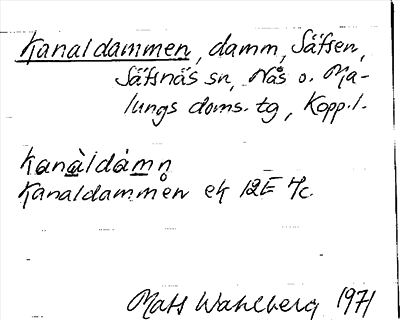 Kanaldammen, damm, Säfsen,
Säfsnäs sn, Nås o. Ma-
lungs doms. tg, Kopp. l.
kanàldámn
Kanaldammen ek 12E 4c.
Mats Wahlberg 1971